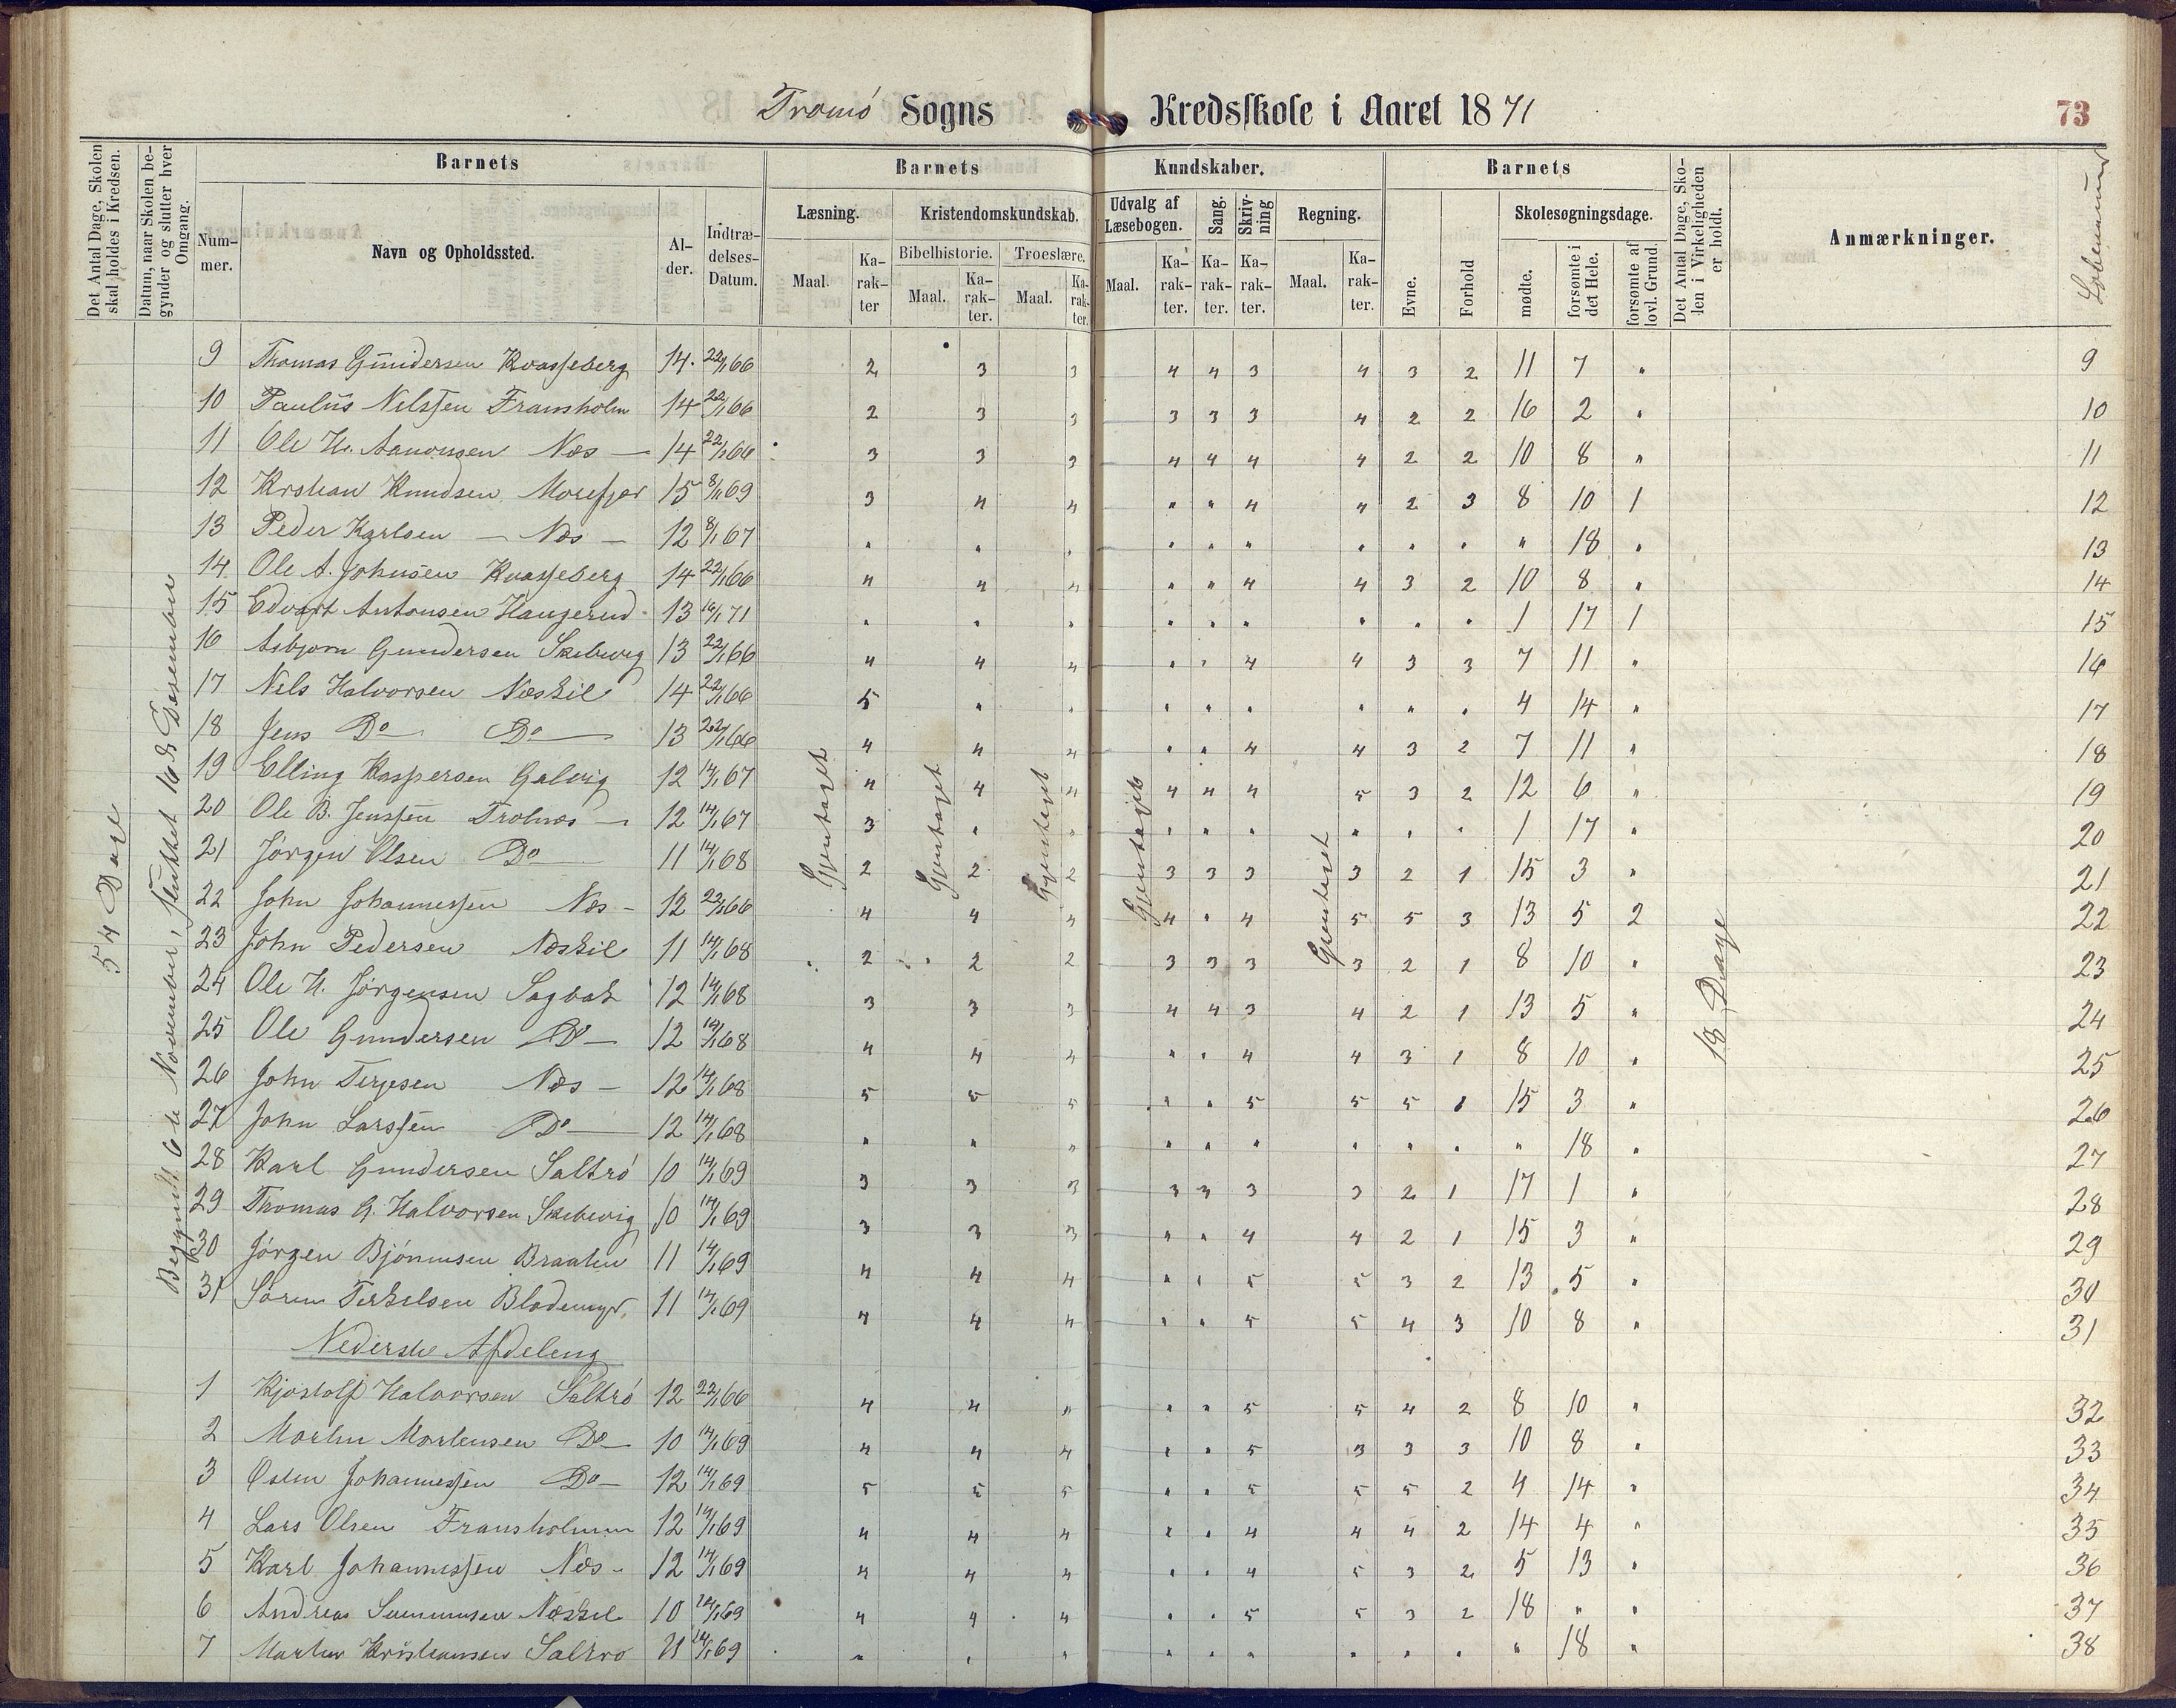 Tromö Sogns Kredsskole i Aaret 1871
73
Det Antal Dage, Skolen skal holdes i Kredsen.
Datum, naar Skolen begynder og slutter hver Omgang.
Barnets
Nummer.
Navn og Opholdssted.
Alder.
Indtrædelses-Datum.
Barnets Kundskaber.
Læsning.
Maal.
Karakter
Kristendomskundskab.
Bibelhistorie.
Maal.
Karakter.
Troeslære.
Maal.
Karakter.
Udvalg af Læsebogen.
Maal.
Karakter.
Sang.
Karakter.
Skrivning
Karakter.
Regning.
Maal.
Karakter.
Barnets
Evne.
Forhold
Skolesøgningsdage.
mødte.
forsømte i det Hele.
forsømte af lovl. Grund.
Det Antal Dage, Skolen i Virkeligheden er holdt.
Anmærkninger.
Løbenummer
54 Dage
Begyndt 6te November, sluttet 16de Desember
Gjentaget
Gjentaget
Gjentaget
Gjentaget
Gjentaget
18 Dage
9 Thomas Gundersen Kvasseberg 14 22/1 66 2 3 3 4 4 3 4 3 2 11 7 " 9
10 Paulus Nilssen Fransholm 14 22/1 66 2 3 3 3 3 3 4 2 2 16 2 " 10
11 Ole H. Aanonsen Næs — 14 22/1 66 3 3 3 4 4 4 4 2 2 10 8 " 11
12 Kristian Knudsen Morefjær 15 8/11 69 3 4 4 " " 4 4 2 3 8 10 1 12
13 Peder Karlsen — Næs — 12 8/1 67 " " " " " " " " " " 18 " 13
14 Ole A. Johnsen Kvasseberg 14 22/1 66 4 4 4 " " 4 4 3 2 10 8 " 14
15 Edvart Antonsen Haugerud 13 16/1 71 " " " " " " " " " 1 17 1 15
16 Asbjørn Gundersen Skibevig 13 22/1 66 4 4 4 " " 4 4 3 3 7 11 " 16
17 Nils Halvorsen Næskil 14 22/1 66 5 " " " " " " " " 4 14 " 17
18 Jens Do Do 13 22/1 66 4 4 4 " " 4 4 3 2 7 11 " 18
19 Elling Kaspersen Galvig 12 14/1 67 4 4 4 4 4 4 5 3 2 12 6 " 19
20 Ole B. Jenssen Trolnæs — 12 14/1 67 3 " " " " " " " " 1 17 " 20
21 Jörgen Olsen Do 11 14/1 68 2 2 2 3 3 3 3 2 1 15 3 " 21
22 John Johannessen Næs — 12 22/1 66 4 4 4 4 " 4 5 5 3 13 5 2 22
23 John Pedersen Næskil 11 14/1 68 2 2 2 3 3 3 3 2 1 8 10 " 23
24 Ole H. Jörgensen Sagbak 12 14/1 68 3 3 3 4 4 3 4 2 1 13 5 " 24
25 Ole Gundersen Do — 12 14/1 68 4 4 4 " " 4 4 3 1 8 10 " 25
26 John Terjesen Næs — 12 14/1 68 5 5 5 " " 5 5 5 1 15 3 " 26
27 John Larssen Do — 12 14/1 68 " " " " " " " " " " 18 " 27
28 Karl Gundersen Saltrö 10 14/1 69 3 3 3 3 3 3 3 2 1 17 1 " 28
29 Thomas G. Halvorsen Skibevig 10 14/1 69 3 3 3 " " 4 4 2 1 15 3 " 29
30 Jörgen Bjönnusen Braaten 11 14/1 69 4 4 4 " " 5 5 3 2 13 5 " 30
31 Sören Terkelsen Blodemyr 11 14/1 69 4 4 4 " " 5 5 4 3 10 8 " 31
Nederste Afdeling
1 Kjostolf Halvorsen Saltrö 12 22/1 66 4 4 " " " 5 5 4 2 8 10 " 32
2 Morten Mortensen Do — 10 14/1 69 4 4 4 " " 5 3 3 3 10 8 " 33
3 Østen Johannessen Do — 12 14/1 69 5 5 5 " " 5 5 5 2 4 14 " 34
4 Lars Olsen Fransholmen 12 14/1 69 4 4 4 " " 4 4 4 2 14 4 " 35
5 Karl Johannessen Næs — 12 14/1 69 4 4 4 " " 4 5 3 2 5 13 " 36
6 Andreas Næskil 10 14/1 69 4 4 4 " " 5 5 3 2 18 " " 37
7 Martin Kristiansen Saltrö 11 14/1 69 " " " " " " " " " " 18 " 38